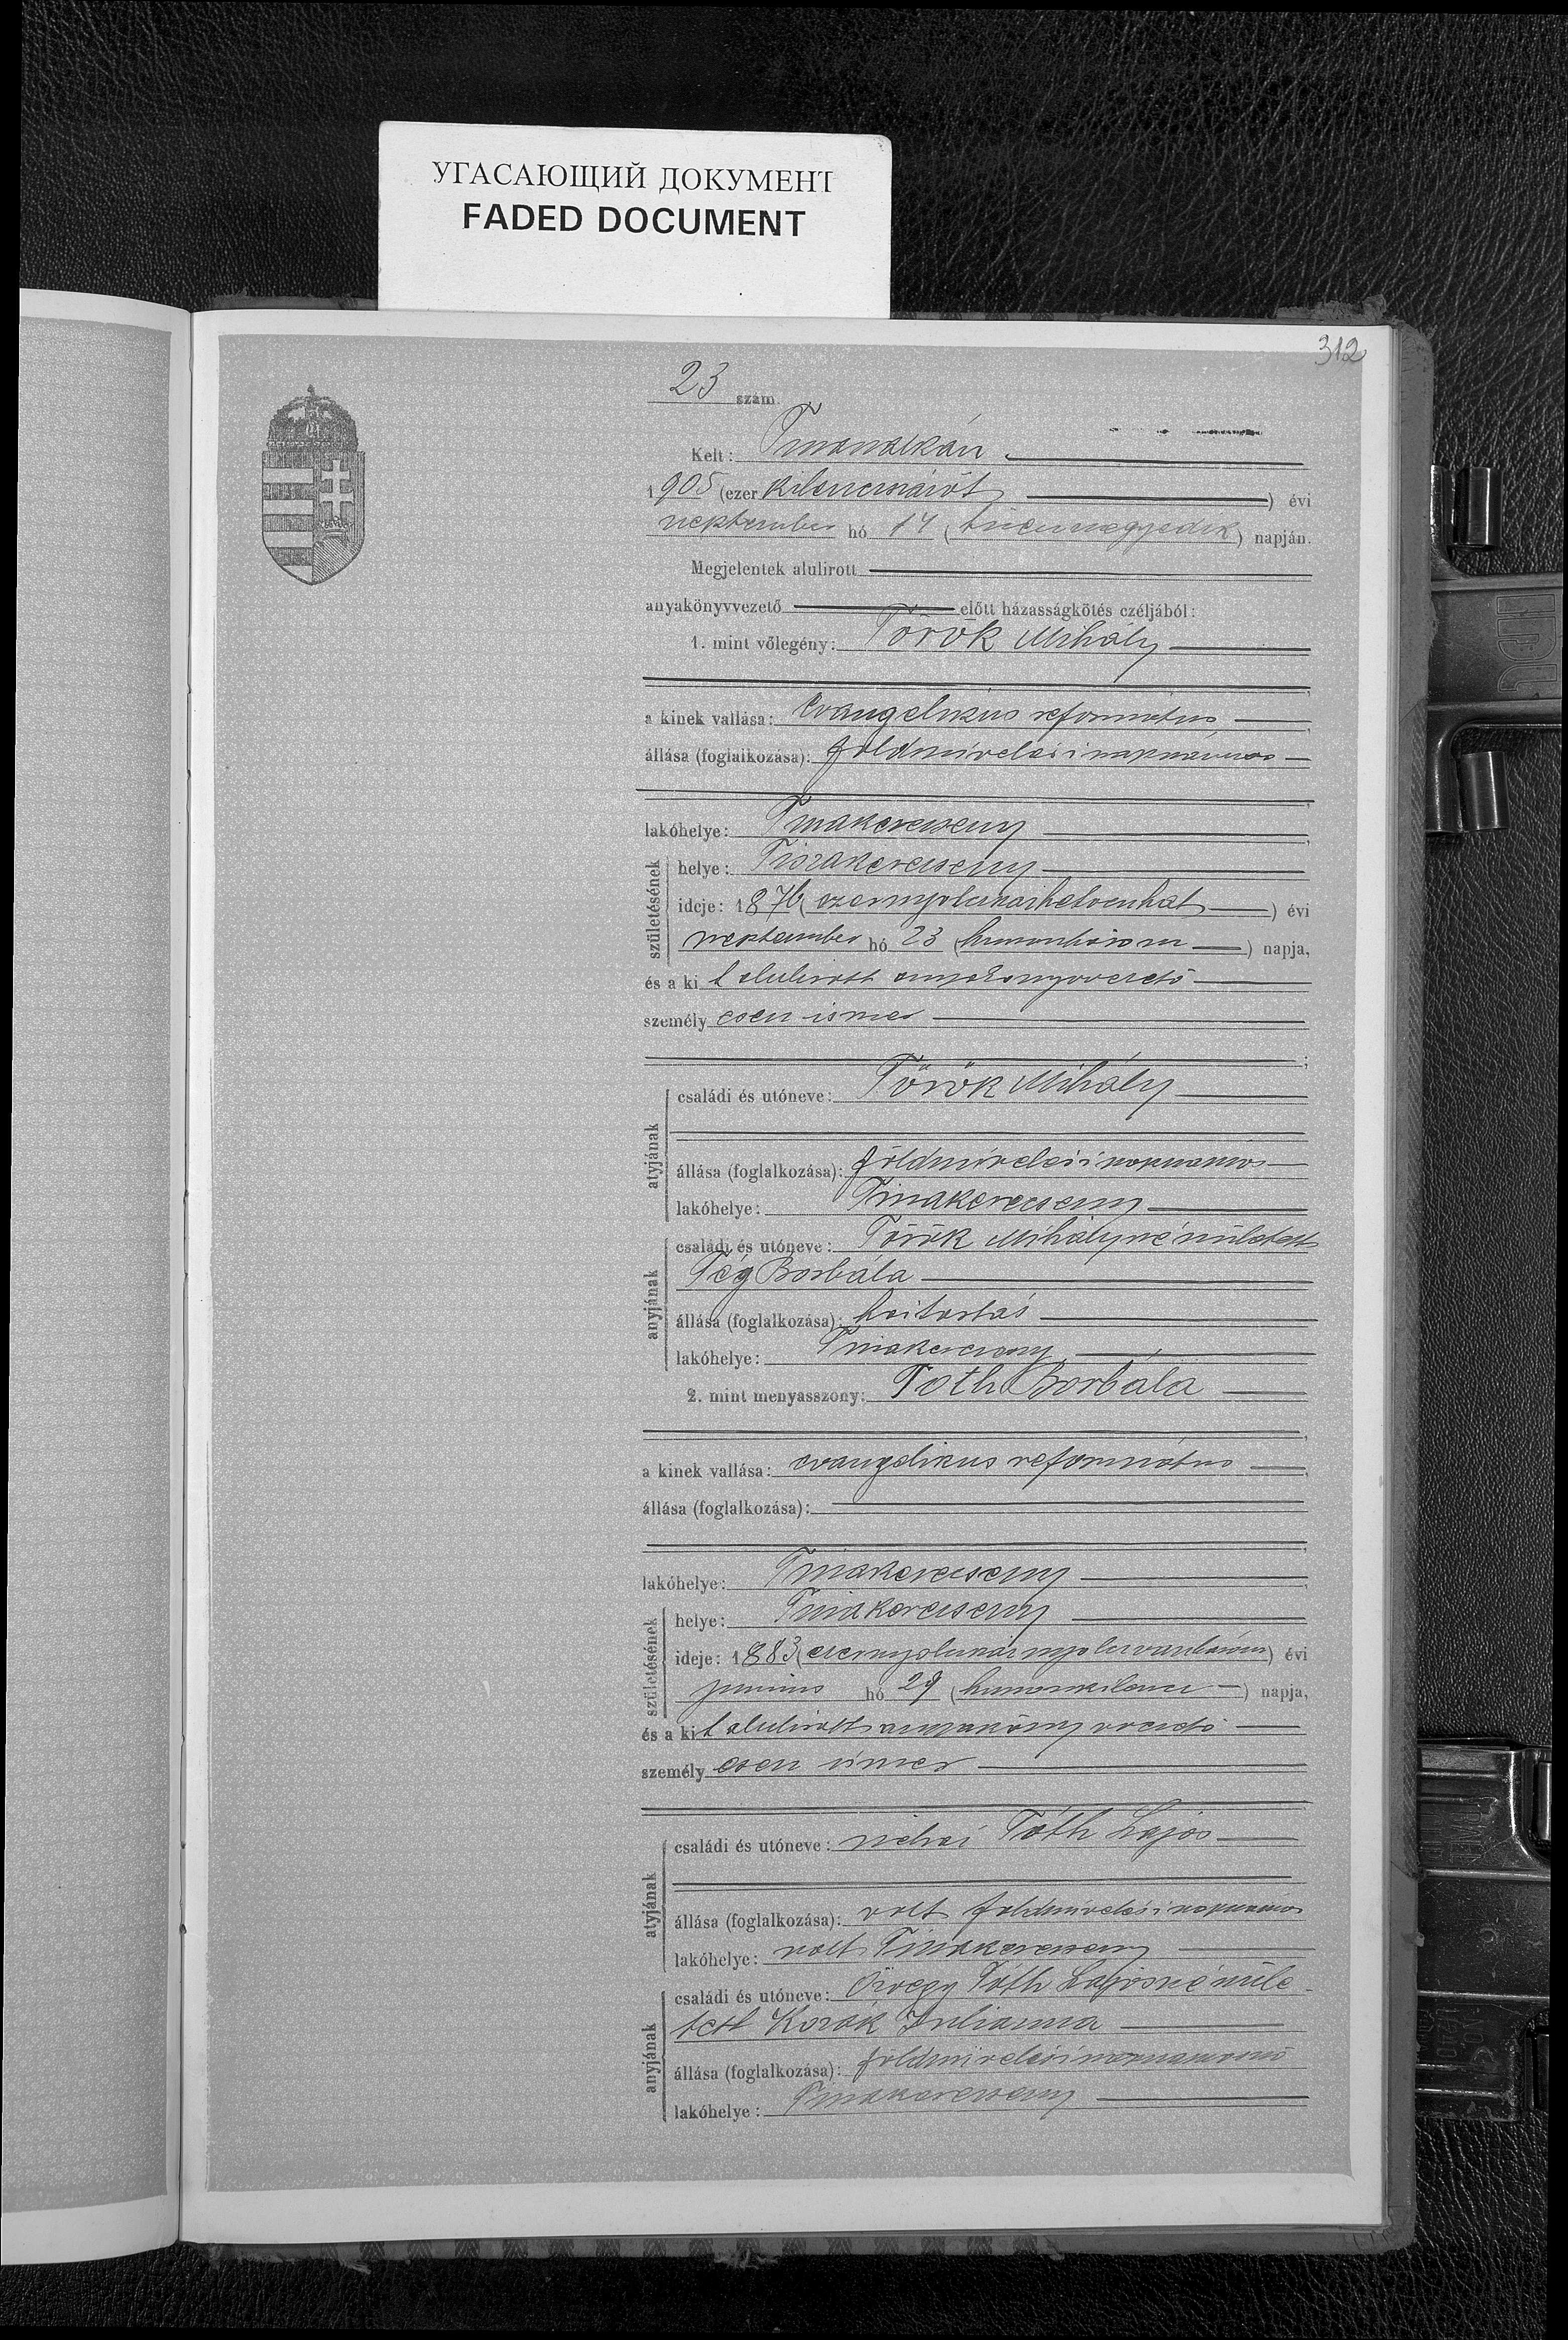 УГАСАЮЩИЙ ДОКУМЕНТ
FADED DOCUMENT
312
23 szám.
Kelt: Tiszaalkán
1905 (ezer kilenczszázöt) évi
szeptember hó 14 (tizennegyedik) napján.
Megjelentek alulirott
anyakönyvvezető előtt házasságkötés czéljából:
1. mint vőlegény: Török Mihály
a kinek vallása: evangelikus református
állása (foglalkozása): földmívelési napszámos
lakóhelye: Tiszakerecseny
születésének
helye: Tiszakerecseny
ideje: 1876 (ezernyolcszázhetvenhat) évi
szeptember hó 23 (huszonhárom) napja,
és a ki t alulirott anyakönyvvezető
személy esen ismer
atyjának
családi és utóneve: Török Mihály
állása (foglalkozása): földmívelési napszámos
lakóhelye: Tiszakerecseny
anyjának
családi és utóneve: Török Mihályné született
Tég Borbála
állása (foglalkozása): háztartás
lakóhelye: Tiszakerecseny
2. mint menyasszony: Tóth Borbála
a kinek vallása: evangelikus református
állása (foglalkozása):
lakóhelye: Tiszakerecseny
születésének
helye: Tiszakerecseny
ideje: 1883 (ezernyolcszáznyolcvanhárom) évi
junius hó 29 (huszonkilenc) napja,
és a ki t alulirott anyakönyvvezető
személy esen ismer
atyjának
családi és utóneve: néhai Tóth Lajos
állása (foglalkozása): volt földmívelési napszámos
lakóhelye: volt Tiszakerecseny
anyjának
családi és utóneve: Özvegy Tóth Lajosné szüle-
tett Kozák Julianna
állása (foglalkozása): földmívelési napszámosnő
lakóhelye: Tiszakerecseny